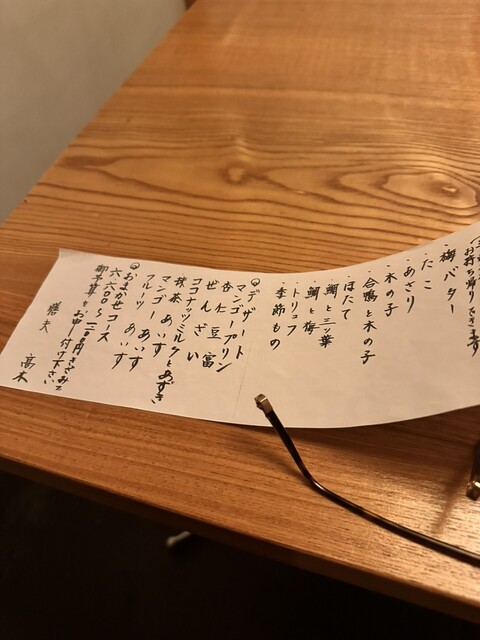 お持ち帰りできます)
・梅バター
・たこ
・あさり
・木の子
・合鴨と木の子
・ほたて
・鯛と三ッ葉
・鯛と梅
・トリュフ
・季節もの
デザート
マンゴープリン
杏仁豆富
ぜんざい
ココナッツミルクとあずき
抹茶あいす
マンゴーあいす
フルーツあいす
おまかせコース
六六〇〇〜
御予算をお申し付け下さい
高木